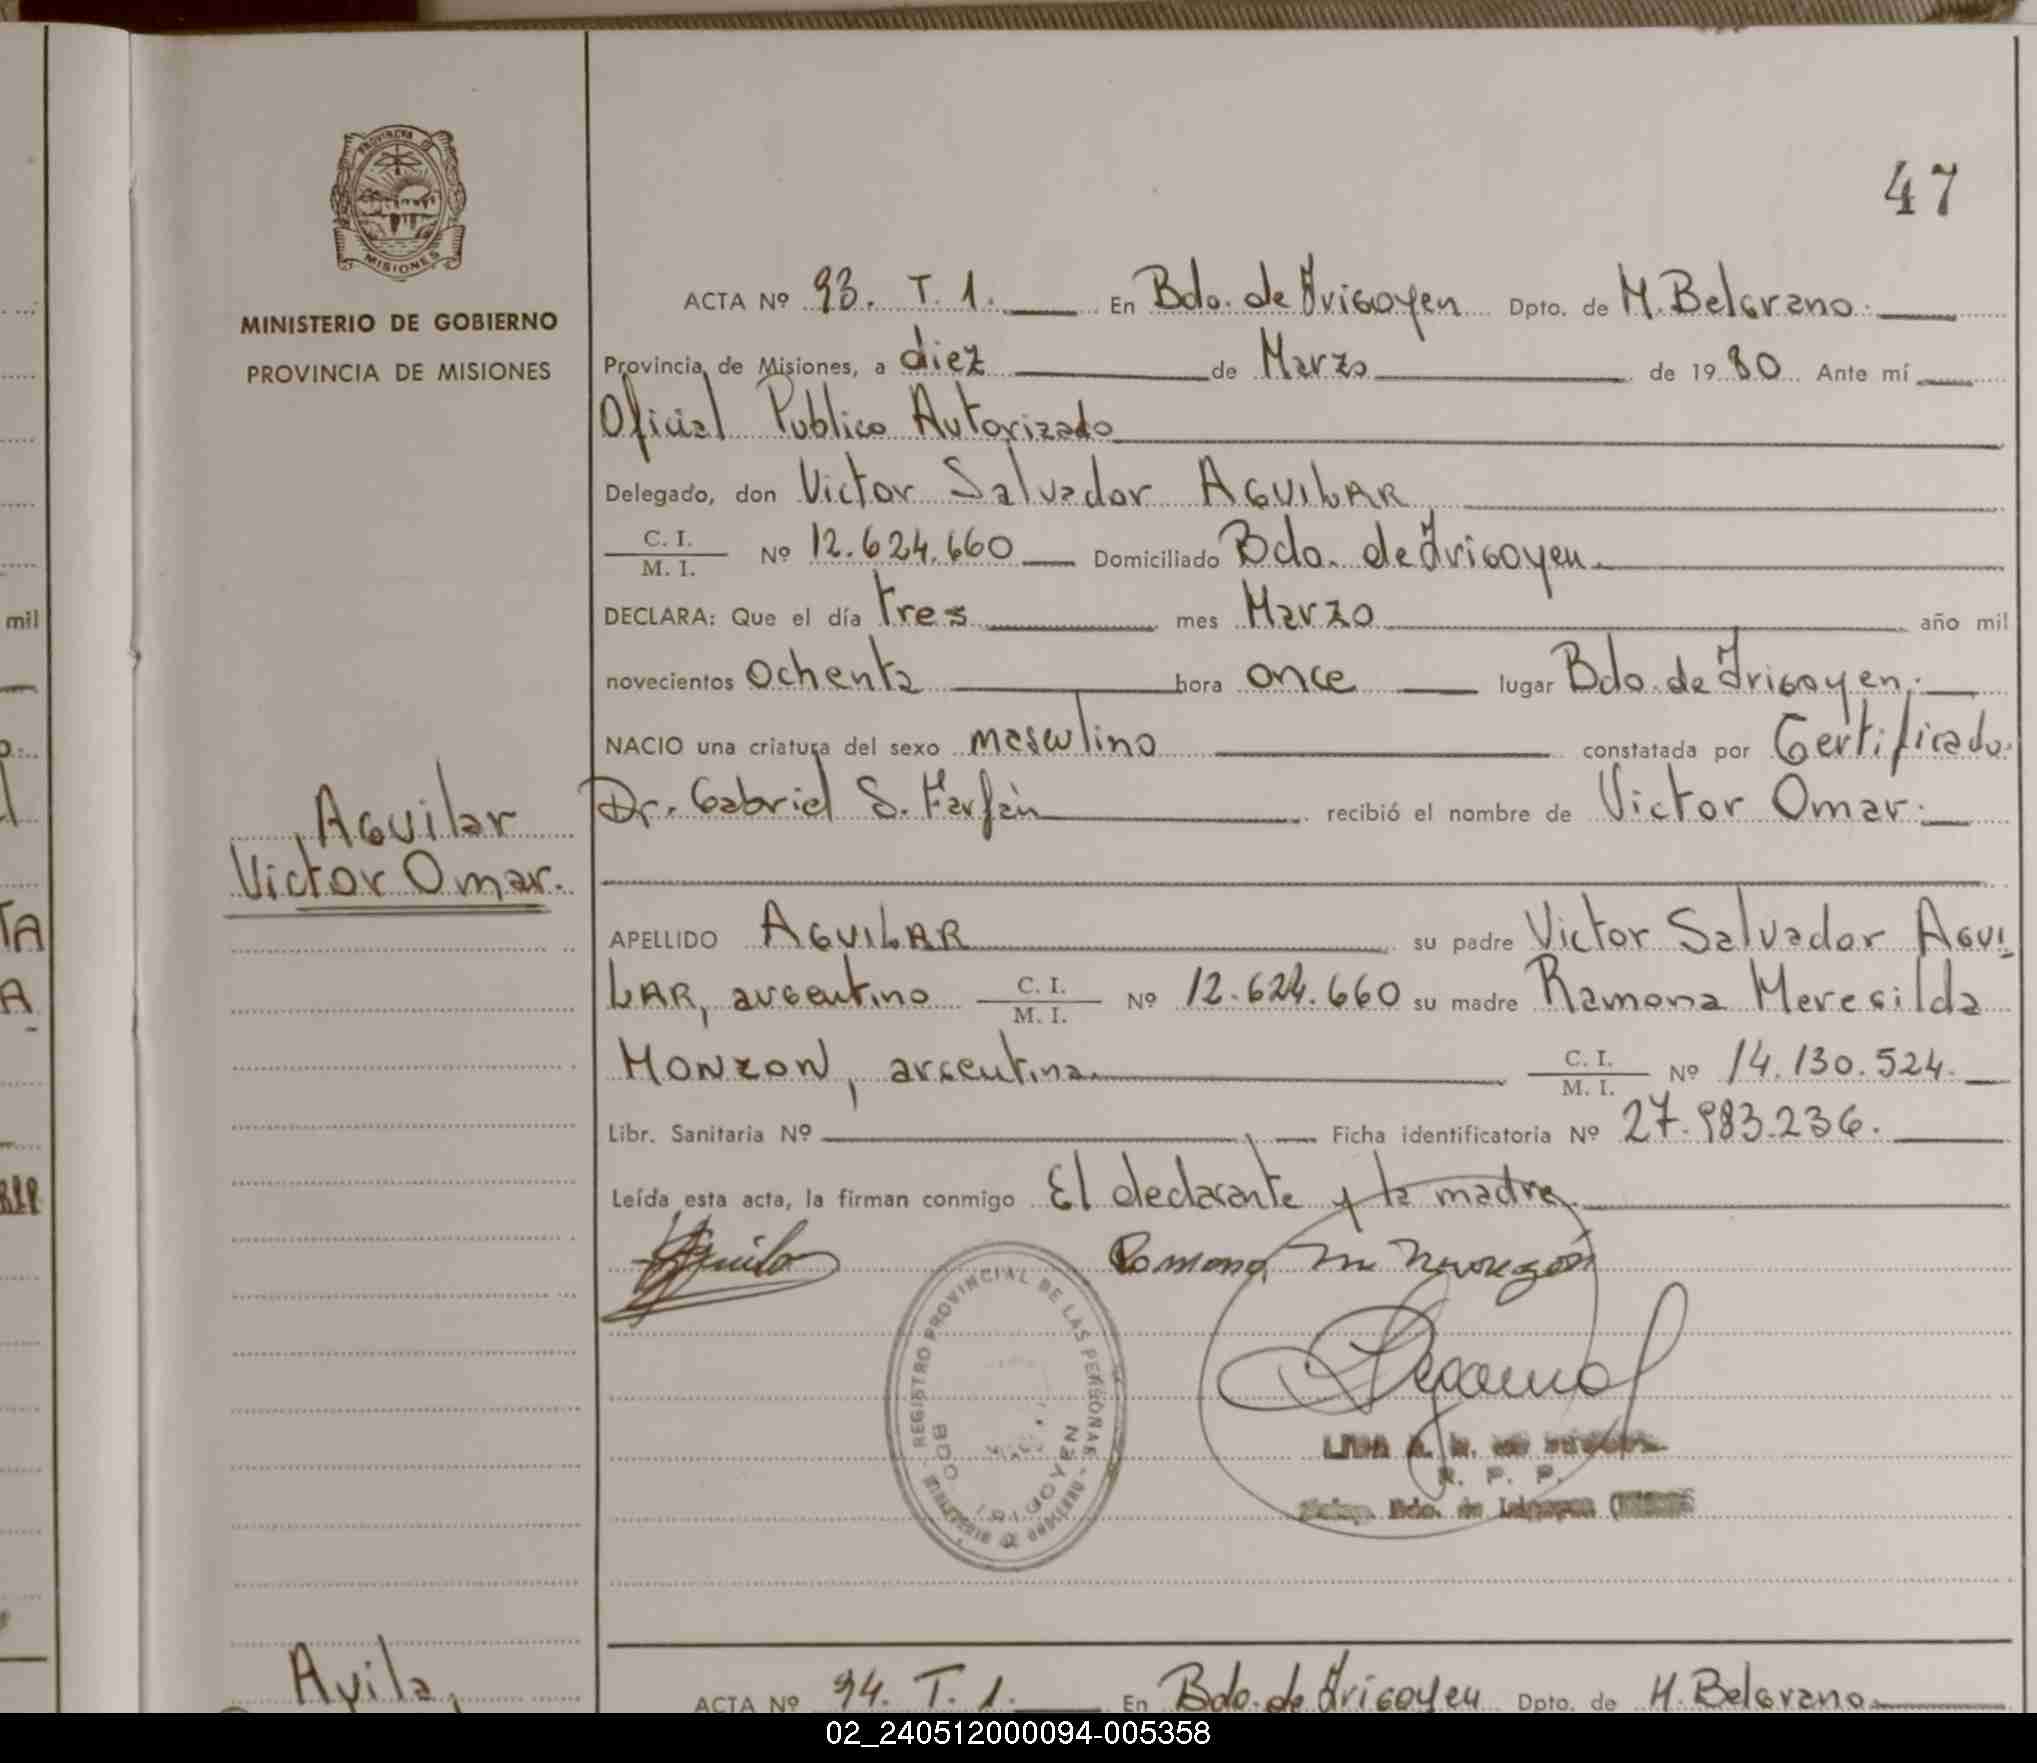 47
PROVINCIA DE
MISIONES
MINISTERIO DE GOBIERNO
PROVINCIA DE MISIONES
ACTA Nº 93. T. 1. En Bdo. de Irigoyen Dpto. de M. Belgrano.
Provincia de Misiones, a diez de Marzo de 1980 Ante mí
Oficial Publico Autorizado
Delegado, don Victor Salvador AGUILAR
C. I.
M. I.
Nº 12.624.660 Domiciliado Bdo. de Irigoyen.
DECLARA: Que el día tres mes Marzo año mil
novecientos ochenta hora once lugar Bdo. de Irigoyen.
NACIO una criatura del sexo masculino constatada por Certificado.
Dr. Gabriel S. Farfán recibió el nombre de Victor Omar.
Aguilar
Victor Omar.
APELLIDO AGUILAR su padre Victor Salvador AGUI
LAR, argentino C. I.
M. I.
Nº 12.624.660 su madre Ramona Meregilda
MONZON, argentina. C. I.
M. I.
Nº 14.130.524.
Libr. Sanitaria Nº Ficha identificatoria Nº 27.983.236.
Leída esta acta, la firman conmigo El declarante y la madre.
Ramona M
REGISTRO PROVINCIAL DE LAS PERSONAS
MINISTERIO DE GOBIERNO
BDO. IRIGOYEN
R. P. P.
Bdo. de Irigoyen
Avila,
ACTA Nº 94. T. 1. En Bdo. de Irigoyen Dpto. de M. Belgrano
mil
TA
A
02_240512000094-005358